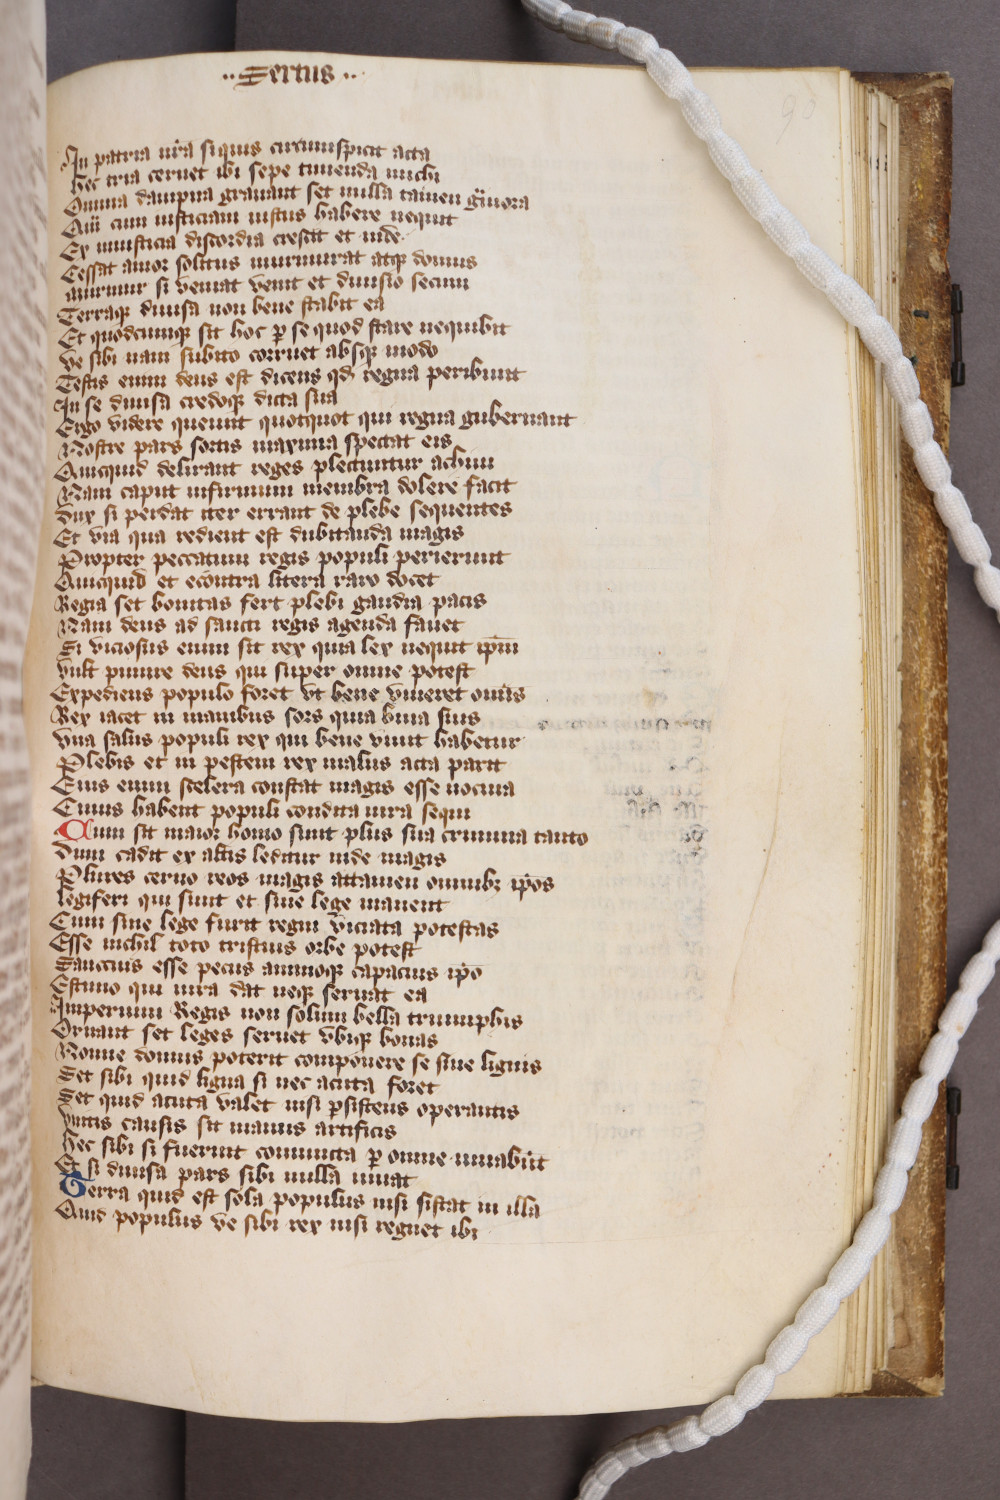 ·· Sextus ··
90
In patria nr̄a si quis circumspicit acta
Hec tria cernet ibi sepe timenda michi
Omnia dampna grauant set nulla tamen grauiora
Quā cum iusticiam iustus habere nequit
Ex iniusticia discordia crescit et inde
Cessat amor solitus murmurat atqꝫ domus
Murmur si veniat venit et diuisio secum
Terraqꝫ diuisa non bene stabit ea
Et quodcumqꝫ sit hoc ꝑ se quod stare nequibit
Ve sibi nam subito corruet absqꝫ modo
Testis enim deus est dicens qd̄ regna peribunt
In se diuisa credoqꝫ dicta sua
Ergo videre queunt quotquot qui regna gubernant
Nostre pars sortis maxima spectat eis
Quicquid delirant reges plectuntur achiui
Nam caput infirmum membra dolere facit
Dux si perdat iter errant de plebe sequentes
Et via qua redient est dubitanda magis
Propter peccatum regis populi perierunt
Quicquid et econtra litera raro docet
Regia set bonitas fert plebi gaudia pacis
Nam deus ad sancti regis agenda fauet
Si viciosus enim sit rex quia lex nequit ip̄m
Vult punire deus qui super omne potest
Expediens populo foret vt bene viueret om̄is
Rex iacet in manibus sors quia bina suis
Vna salus populi rex qui bene viuit habetur
Plebis et in pestem rex malus acta parit
Eius enim scelera constat magis esse nociua
Cuius habent populi condita iura sequi
Qum sit maior homo sunt plus sua crimina tanto
Dum cadit ex altis leditur inde magis
Plures cerno reos magis attamen omnibꝫ ip̄os
Legiferi qui sunt et sine lege manent
Cum sine lege furit regni viciata potestas
Esse nichil toto tristius orbe potest
Sanccius esse pecus animoqꝫ capacius ip̄o
Estimo qui iura dat neqꝫ seruat ea
Imperium Regis non solum bella triumphis
Ornant set leges seruet vbiqꝫ bonas
Nonne domus poterit componere se sine lignis
Set sibi quid ligna si nec acuta foret
Set quid acuta valet nisi ꝑsistens operantis
Vnitis causis sit manus artificis
Hec sibi si fuerint coniuncta ꝑ omne iuuabūt
Et si diuisa pars sibi nulla iuuat
Terra quid est sola populus nisi sistat in illa
Quid populus ve sibi rex nisi regnet ibi